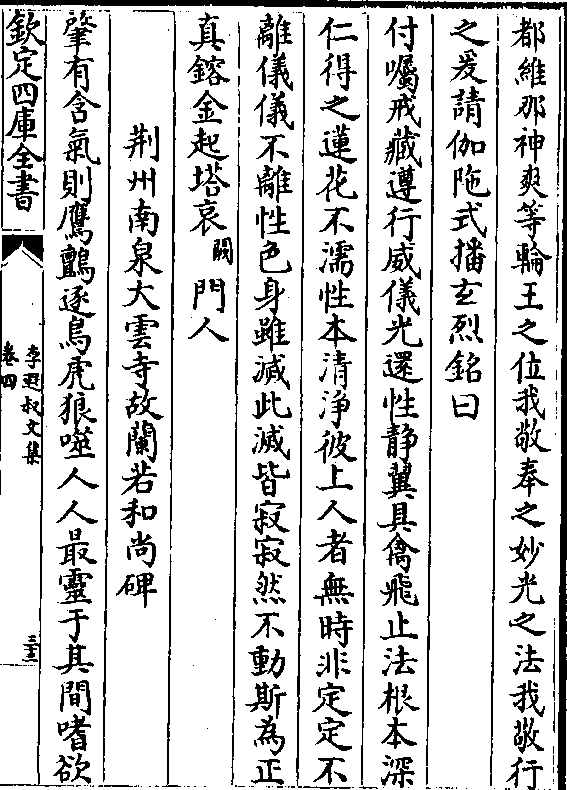 都維那神爽等輪王之位我敬奉之妙光之法我敬行
之爰請伽陁式播玄烈銘曰
付囑戒藏遵行威儀光還性靜翼具禽飛止法根本深
仁得之蓮花不濡性本清浄彼上人者無時非定定不
離儀儀不離性色身雖滅此滅皆寂寂然不動斯為正
真鎔金起塔哀闕門人
荆州南泉大雲寺故蘭若和尚碑
肇有含氣則鷹鸇逐鳥虎狼噬人人最靈于其間嗜欲
欽定四庫全書
李遐叔文集
卷四
三十三